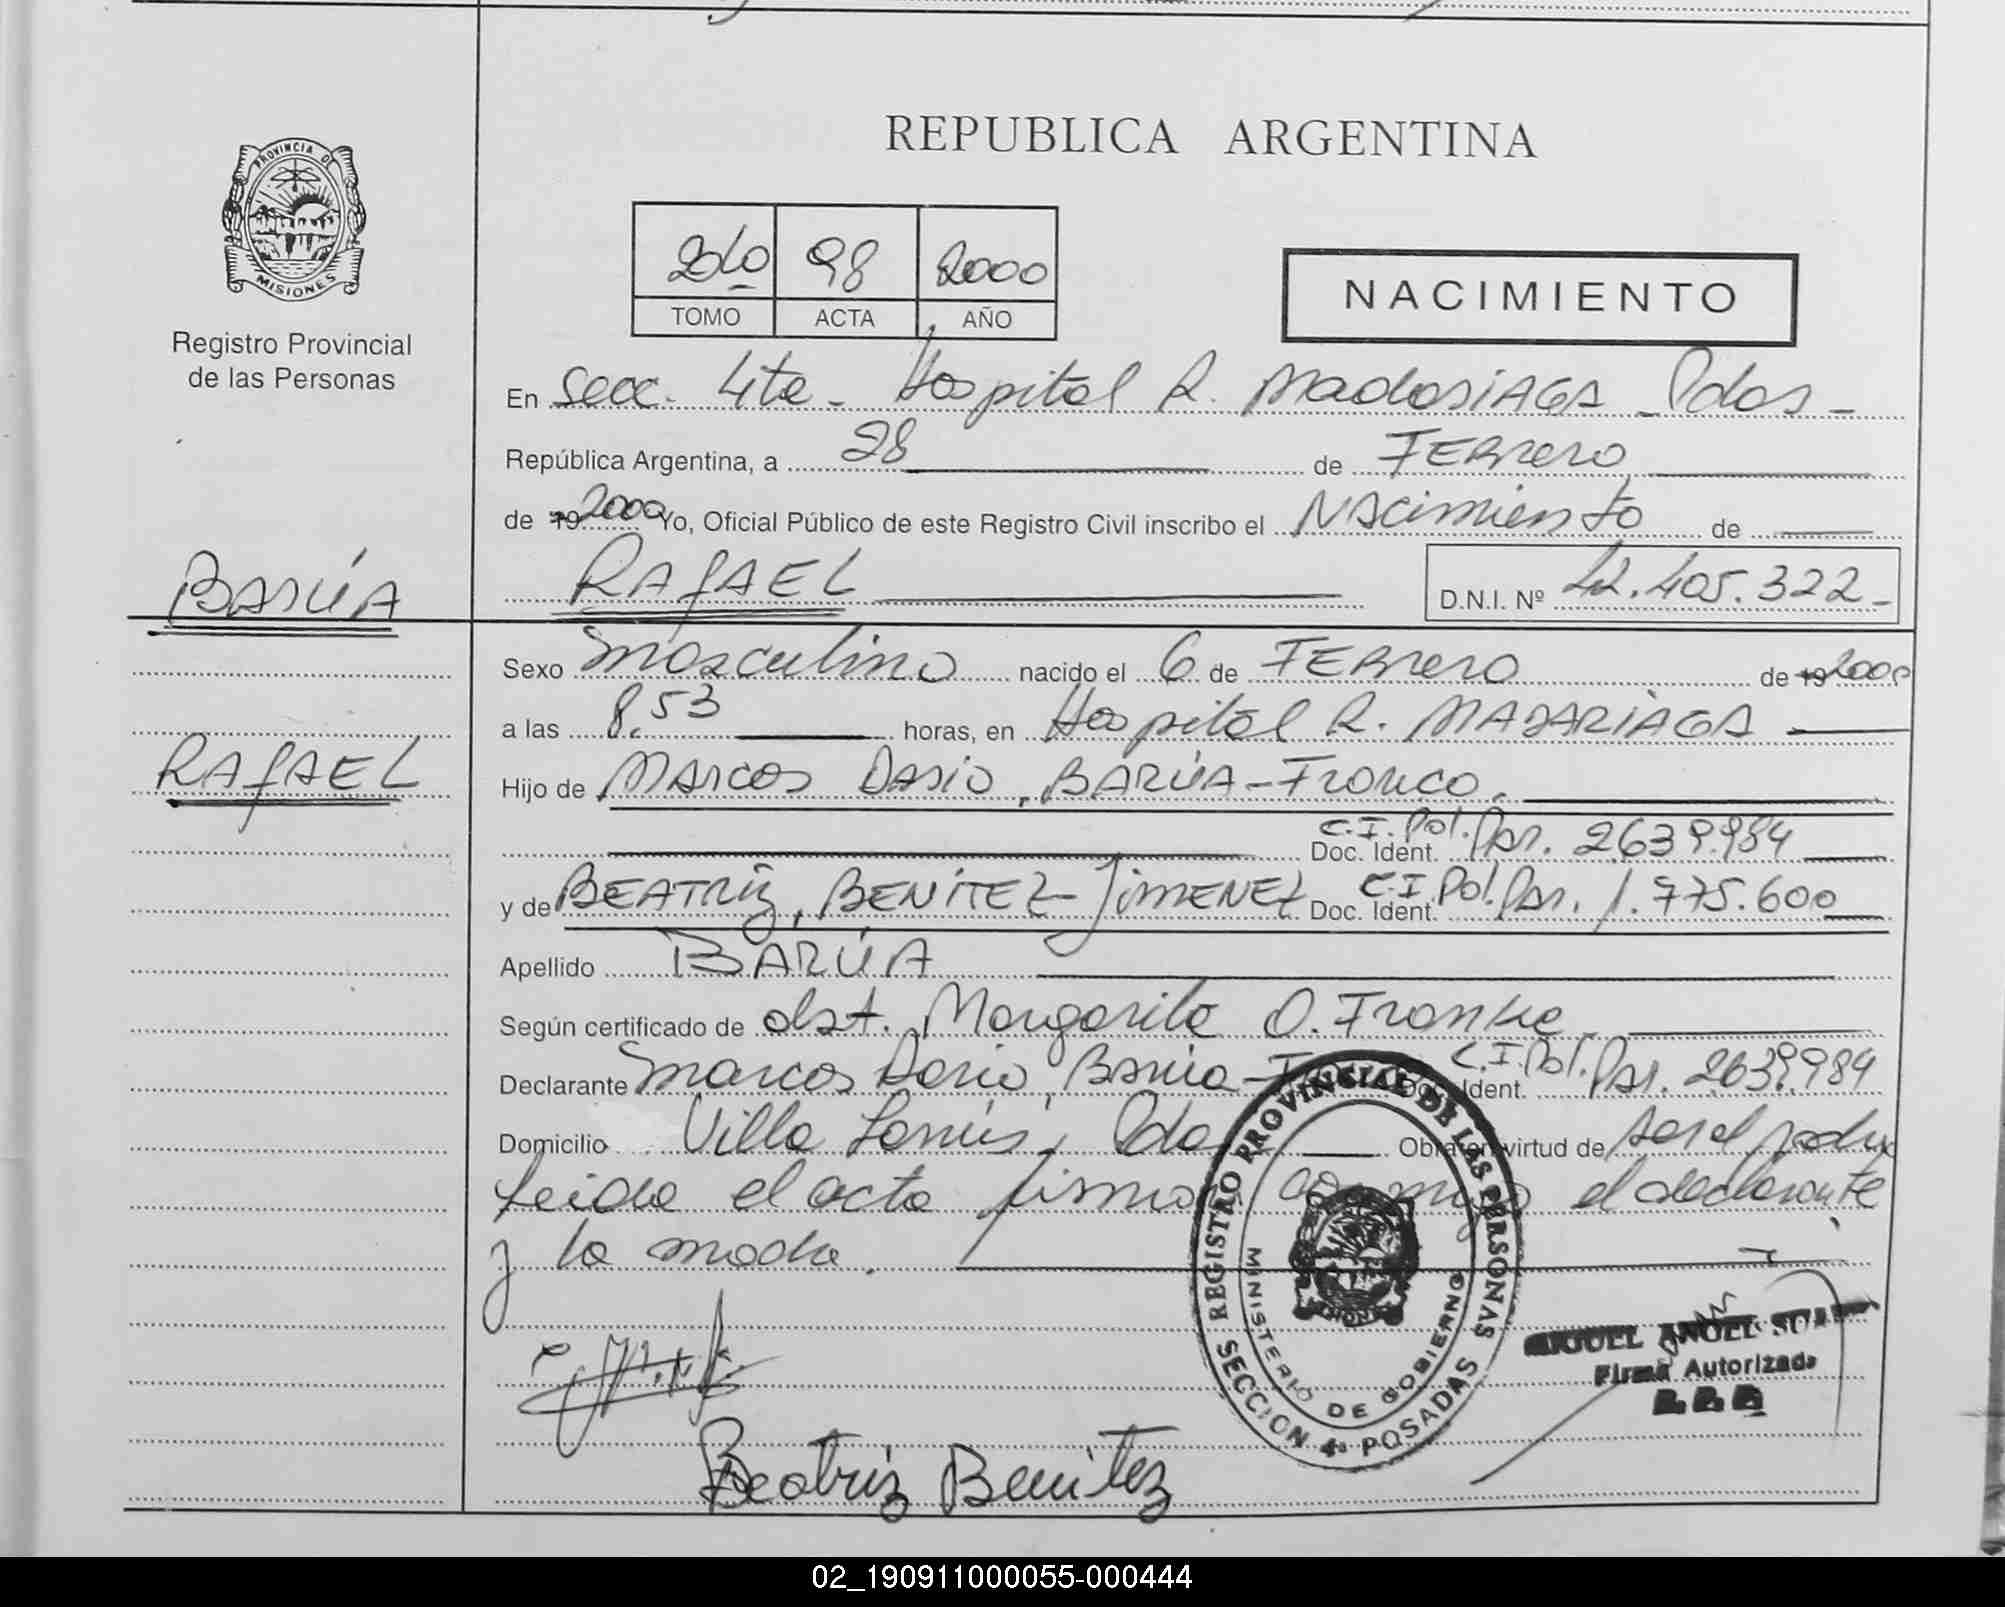 REPUBLICA ARGENTINA
PROVINCIA DE
MISIONES
Registro Provincial
de las Personas
2do 98 2000
TOMO ACTA AÑO
NACIMIENTO
En Secc. 4ta - Hospital R. Madariaga - Pdas -
República Argentina, a 28 de Febrero
de 19 2000 Yo, Oficial Público de este Registro Civil inscribo el Nacimiento de
BARÚA
RAfAEL D.N.I. Nº 42.405.322-
Sexo Masculino nacido el 6 de FEBrero de 19 2000
a las 8.53 horas, en Hospital R. MADARIAGA
RAfAEL
Hijo de MARCOS DARIO, BARÚA-Franco.
C.I. Pol. Par. 2639.984
Doc. Ident.
y de BEATRIZ, BENITEZ-JIMENEZ Doc. Ident. C.I Pol. Par. 1.775.600
Apellido BARÚA
Según certificado de obst. Margarita O. Franke.
Declarante Marcos Dario, Barúa-F Doc. Ident. C.I. Pol. Par. 2639.984
Domicilio Villa Lanús, Pdas Obra en virtud de ser el padre
Leida el acta firman conmigo el declarante
y la madre.
REGISTRO PROVINCIAL DE LAS PERSONAS
MINISTERIO DE GOBIERNO
SECCION 4ª POSADAS
MIGUEL ANGEL
Firma Autorizada
Beatriz Benitez
02_190911000055-000444